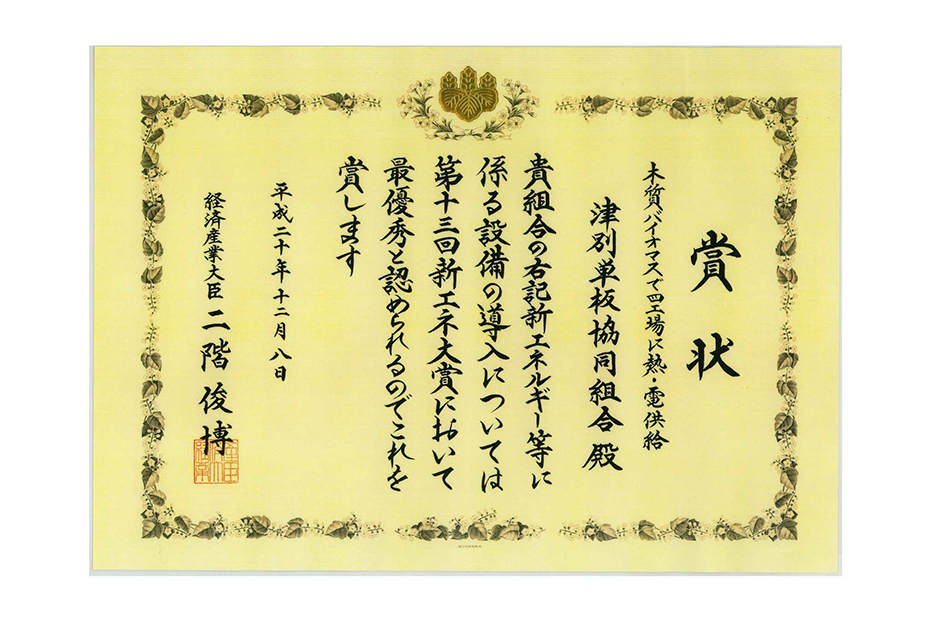 賞状
木質バイオマスで四工場に熱・電供給
津別単板協同組合殿
貴組合の右記新エネルギー等に
係る設備の導入については
第十三回新エネ大賞において
最優秀と認められるのでこれを
賞します
平成二十年十二月八日
経済産業大臣 二階俊博